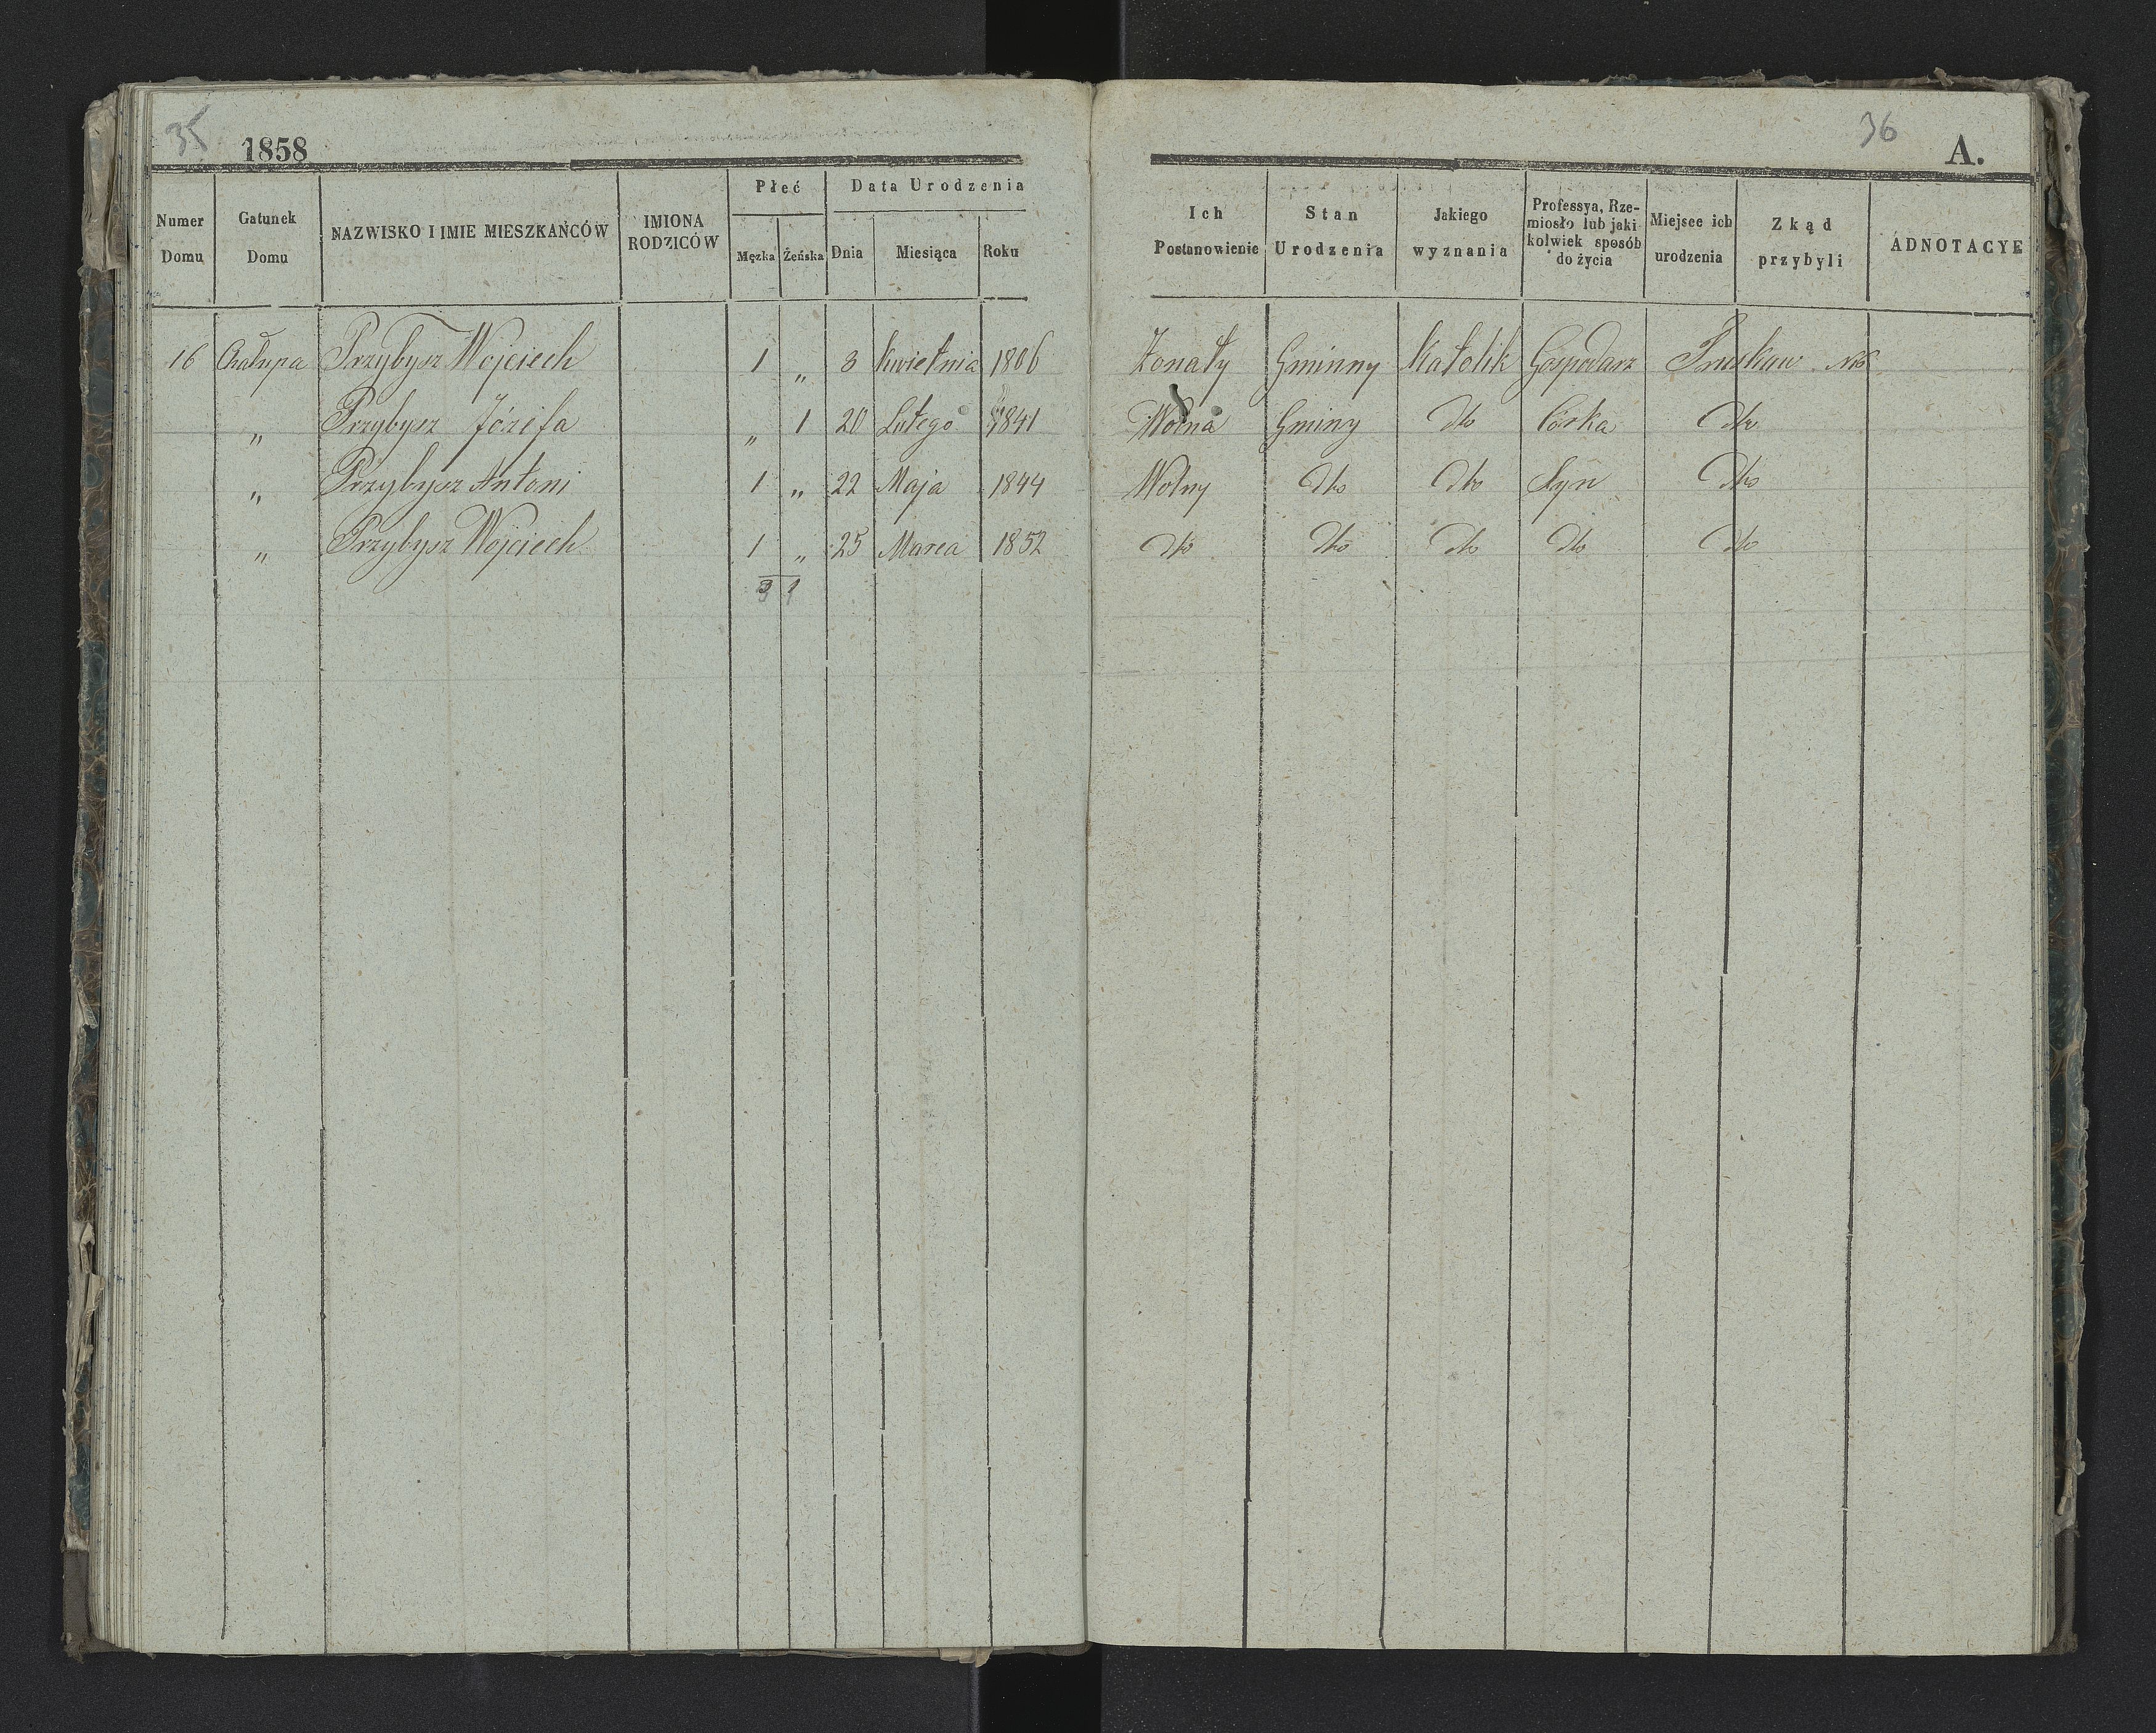 35
1858
36
A.
Numer Domu
Gatunek Domu
NAZWISKO I IMIE MIESZKAŃCÓW
IMIONA RODZICÓW
Płeć
Męzka
Żeńska
Data Urodzenia
Dnia
Miesiąca
Roku
Ich Postanowienie
Stan Urodzenia
Jakiego wyznania
Professya, Rze-
miosło lub jaki
kolwiek sposób
do życia
Miejsce ich urodzenia
Zkąd przybyli
ADNOTACYE
16 Chałupa Przybysz Wojciech 1 „ 3 Kwietnia 1806 Żonaty Gminny Katolik Gospodarz
„ Przybysz Józefa „ 1 20 Lutego 1841 Wolna Gminy dto Córka dto
„ Przybysz Antoni 1 „ 22 Maja 1844 Wolny dto dto Syn dto
„ Przybysz Wojciech 1 „ 25 Marca 1852 dto dto dto dto dto
3 1